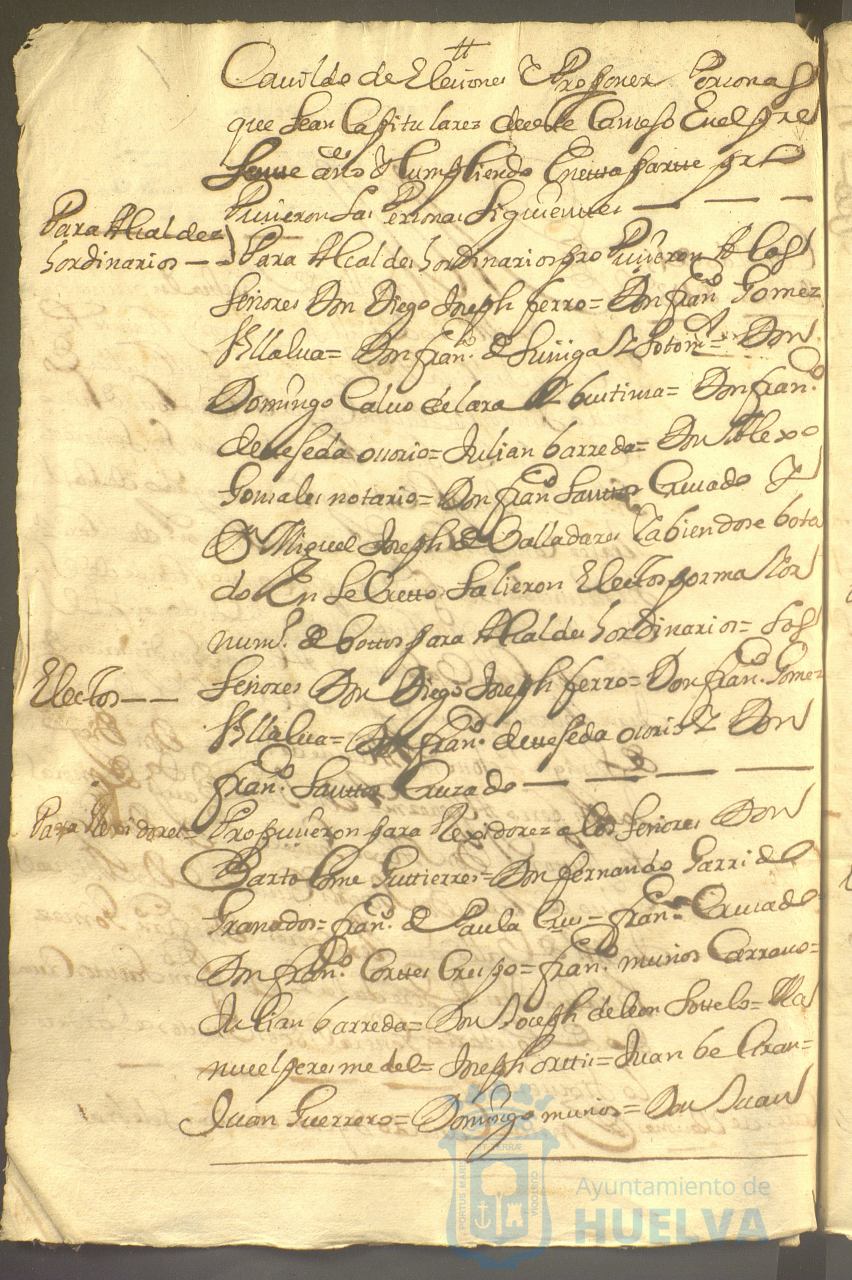 Cavildo de Eleciones y Proponer Personas
que sean Capitulares deeste Consejo En el pre
sente año y Cumpliendo En esta partte pro
Pusieron las Personas Siguienttes — — —
Para Alcaldes
hordinarios —
Para Alcaldes hordinarios pro Pusieron A los
señores Don Diego Joseph ferro = Don franco Gomez
Villalva = Don franco de suñiga y sotomr = Don
Domingo Calvo de lara = Don franco
de ueseda ossorio = Julian barreda = Don Alexo
Gonsales notario = Don franco Santtos Cruzado y
Dn Miguel Joseph de Valladares Y abiendose bota
do En seCretto salieron Electos por maior
numo de bottos para Alcaldes hordinarios = los
Electos — —
señores Don Diego Joseph ferro = Don franco Gomez
Villalva = Dn franco de ueseda ossorio y Don
franco Santtos Cruzado — — — —
Para Rexidores =
Propusieron para Rexidores a los señores Don
Bartolome Guttierres = Don fernando Garrido
Granados = franco de Paula Crus = franco Cruzado
Don franco Corttes Crespo = franco muños Carrasco =
Julian barreda = Don Joseph de leon sottelo = Ma
nuel peres = Joseph orttis = Juan beltran =
Juan Guerrero = Domingo muños = Don Juan
PORTUS MARIS ET TERRÆ CUSTODIA
Ayuntamiento de
HUELVA